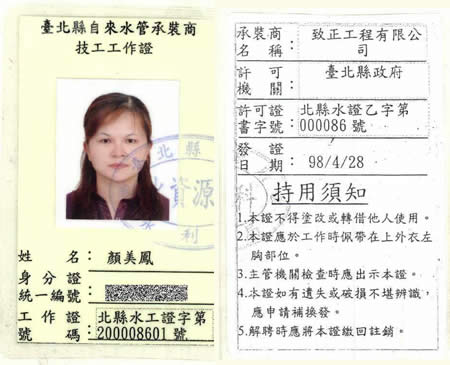 臺北縣自來水管承裝商
技工工作證
北縣
水資源
利
姓名：顏美鳳
身分證
統一編號：
工作證 北縣水工證字第
號碼：200008601 號
承裝商 致正工程有限公
名稱：司
許可
機關：臺北縣政府
許可證 北縣水證乙字第
書字號：000086 號
發證
日期：98/4/28
持用須知
1.本證不得塗改或轉借他人使用。
2.本證應於工作時佩帶在上外衣左
胸部位。
3.主管機關檢查時應出示本證。
4.本證如有遺失或破損不堪辨識，
應申請補換發。
5.解聘時應將本證繳回註銷。